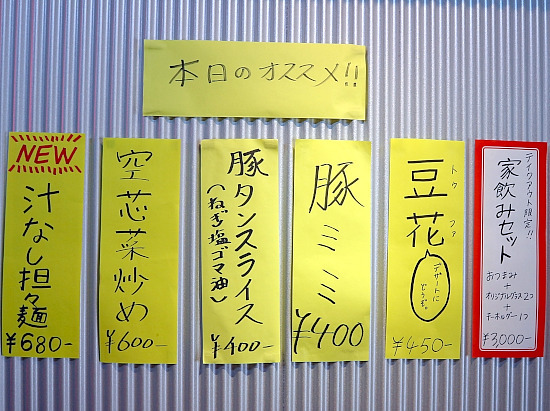 本日のオススメ!!
NEW
汁なし担々麺
¥680-
空芯菜炒め
¥600-
豚タンスライス
(ねぎ塩ゴマ油)
¥400-
豚ミミ
¥400
豆花
トゥファ
デザートに
どうぞ。
¥450-
テイクアウト限定!!
家飲みセット
おつまみ
+
オリジナルグラス2つ
+
キーホルダー1つ
¥3,000-